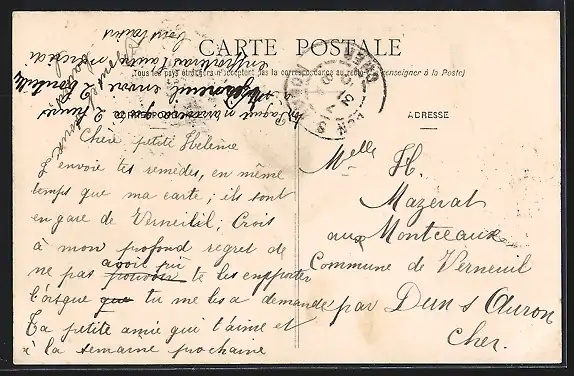 CARTE POSTALE
Tous les pays étrangers n'acceptent pas la correspondance au recto (se renseigner à la Poste)
ADRESSE
Chère petite Hélène
J'envoie tes remèdes, en même
temps que ma carte ; ils sont
en gare de Verneilil ; Crois
à mon profond regret de
ne pas pouvoir avoir pu te les emporter
lorsque que tu me les a demandé
Ta petite amie qui t'aime et
à la semaine prochaine
Melle H.
Mazerat
aux Montceaux
Commune de Verneuil
par Dun s Auron
Cher.